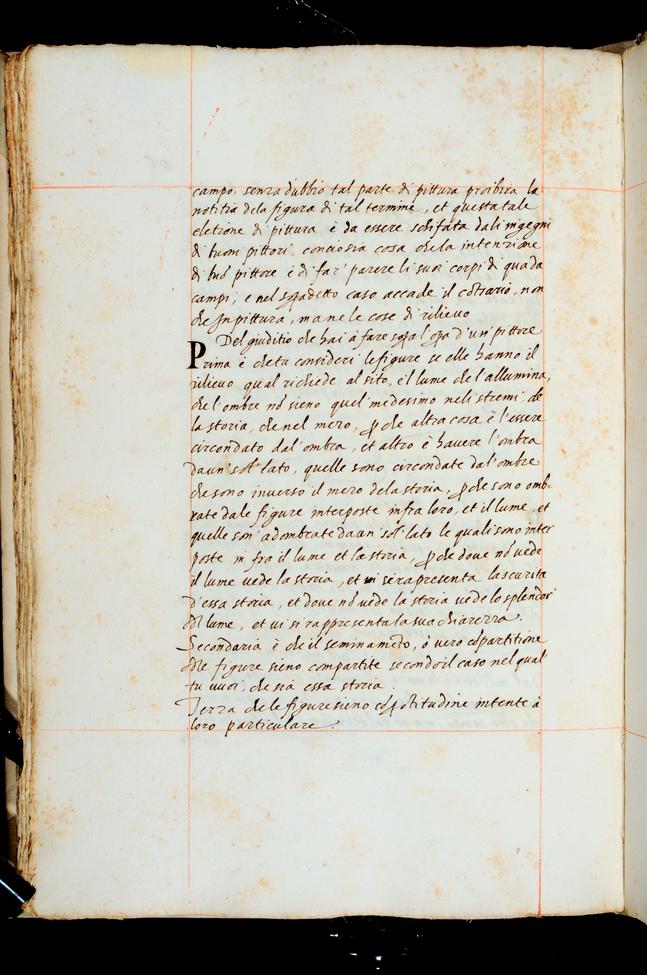 campo, senza dubbio tal parte di pittura proibira la
notitia dela figura di tal termine, et questa tale
eletione di pittura è da essere schifata dali ingegni
di buoni pittori, conciosia cosa che la intenzione
di tuo pittore è di far' parere li suoi corpi di qua da
campi, e nel sopadetto caso accade il cõtrario, non
che In pittura, ma ne le cose di rilievo
Del giuditio che hai à fare sopa l'opa d'un' pittore
Prima è che tu consideri le figure se elle hanno il
rilievo qual richiede al sito, e il lume che l'allumina,
che l'ombre nõ sieno quel' medesimo neli stremi de
la storia, che nel mezo, p che altra cosa è l'essere
circondato dal'ombra, et altro è havere l'ombra
da un' sol' lato, quelle sono circondate dal'ombre
che sono inverso il mezo dela storia, p che sono omb-
rate dale figure interposte infra loro, et il lume, et
quelle son' adombrate da un' sol' lato le quali sono inter
poste in fra il lume et la storia, p che dove nõ vede
il lume vede la storia, et vi si rapresenta la scurita
d'essa storia, et dove nõ vede la storia vede lo splendor'
del lume, et vi si rappresenta la sua chiarezza.
Secondaria è che il seminamẽto, ò vero cõpartitione
delle figure sieno compartite secondo il caso nel qual'
tu vuoi, che sia essa storia.
Terza che le figure sieno cõ pntitudine intente à
loro particulare.